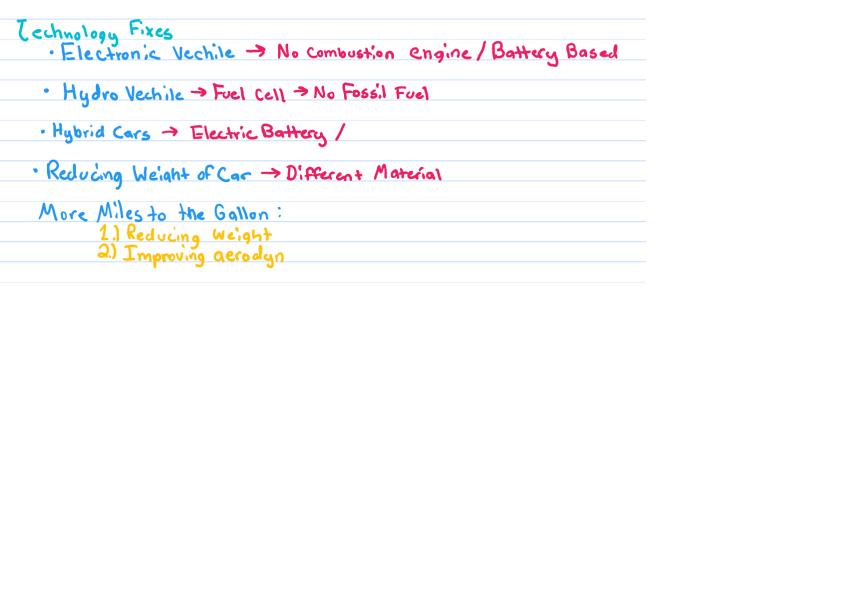 Technology Fixes
• Electronic Vechile → No Combustion engine / Battery Based
• Hydro Vechile → Fuel Cell → No Fossil Fuel
• Hybrid Cars → Electric Battery /
• Reducing Weight of Car → Different Material
More Miles to the Gallon :
1.) Reducing weight
2.) Improving aerodyn